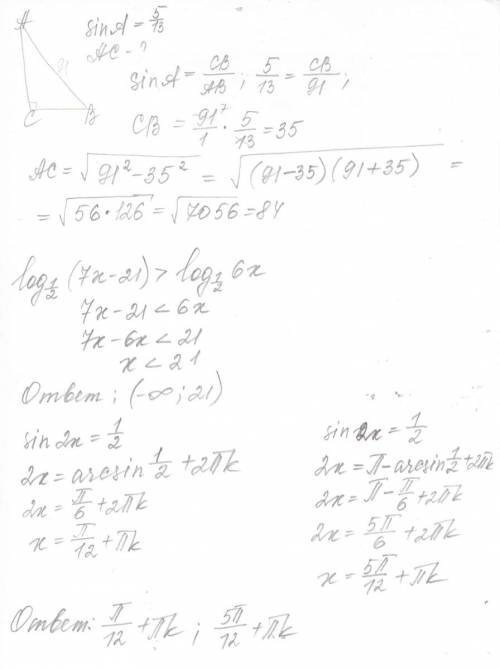 A
sin A = 5/13
AC - ?
91
C B
sin A = CB/AB ; 5/13 = CB/91 ;
CB = 91⁷/1 · 5/13 = 35
AC = √(91² - 35²) = √((91-35)(91+35)) =
= √(56·126) = √7056 = 84
log₁/₂ (7x-21) > log₁/₂ 6x
7x - 21 < 6x
7x - 6x < 21
x < 21
Ответ: (-∞; 21)
sin 2x = 1/2
2x = arcsin 1/2 + 2πk
2x = π/6 + 2πk
x = π/12 + πk
sin 2x = 1/2
2x = π - arcsin 1/2 + 2πk
2x = π - π/6 + 2πk
2x = 5π/6 + 2πk
x = 5π/12 + πk
Ответ: π/12 + πk ; 5π/12 + πk